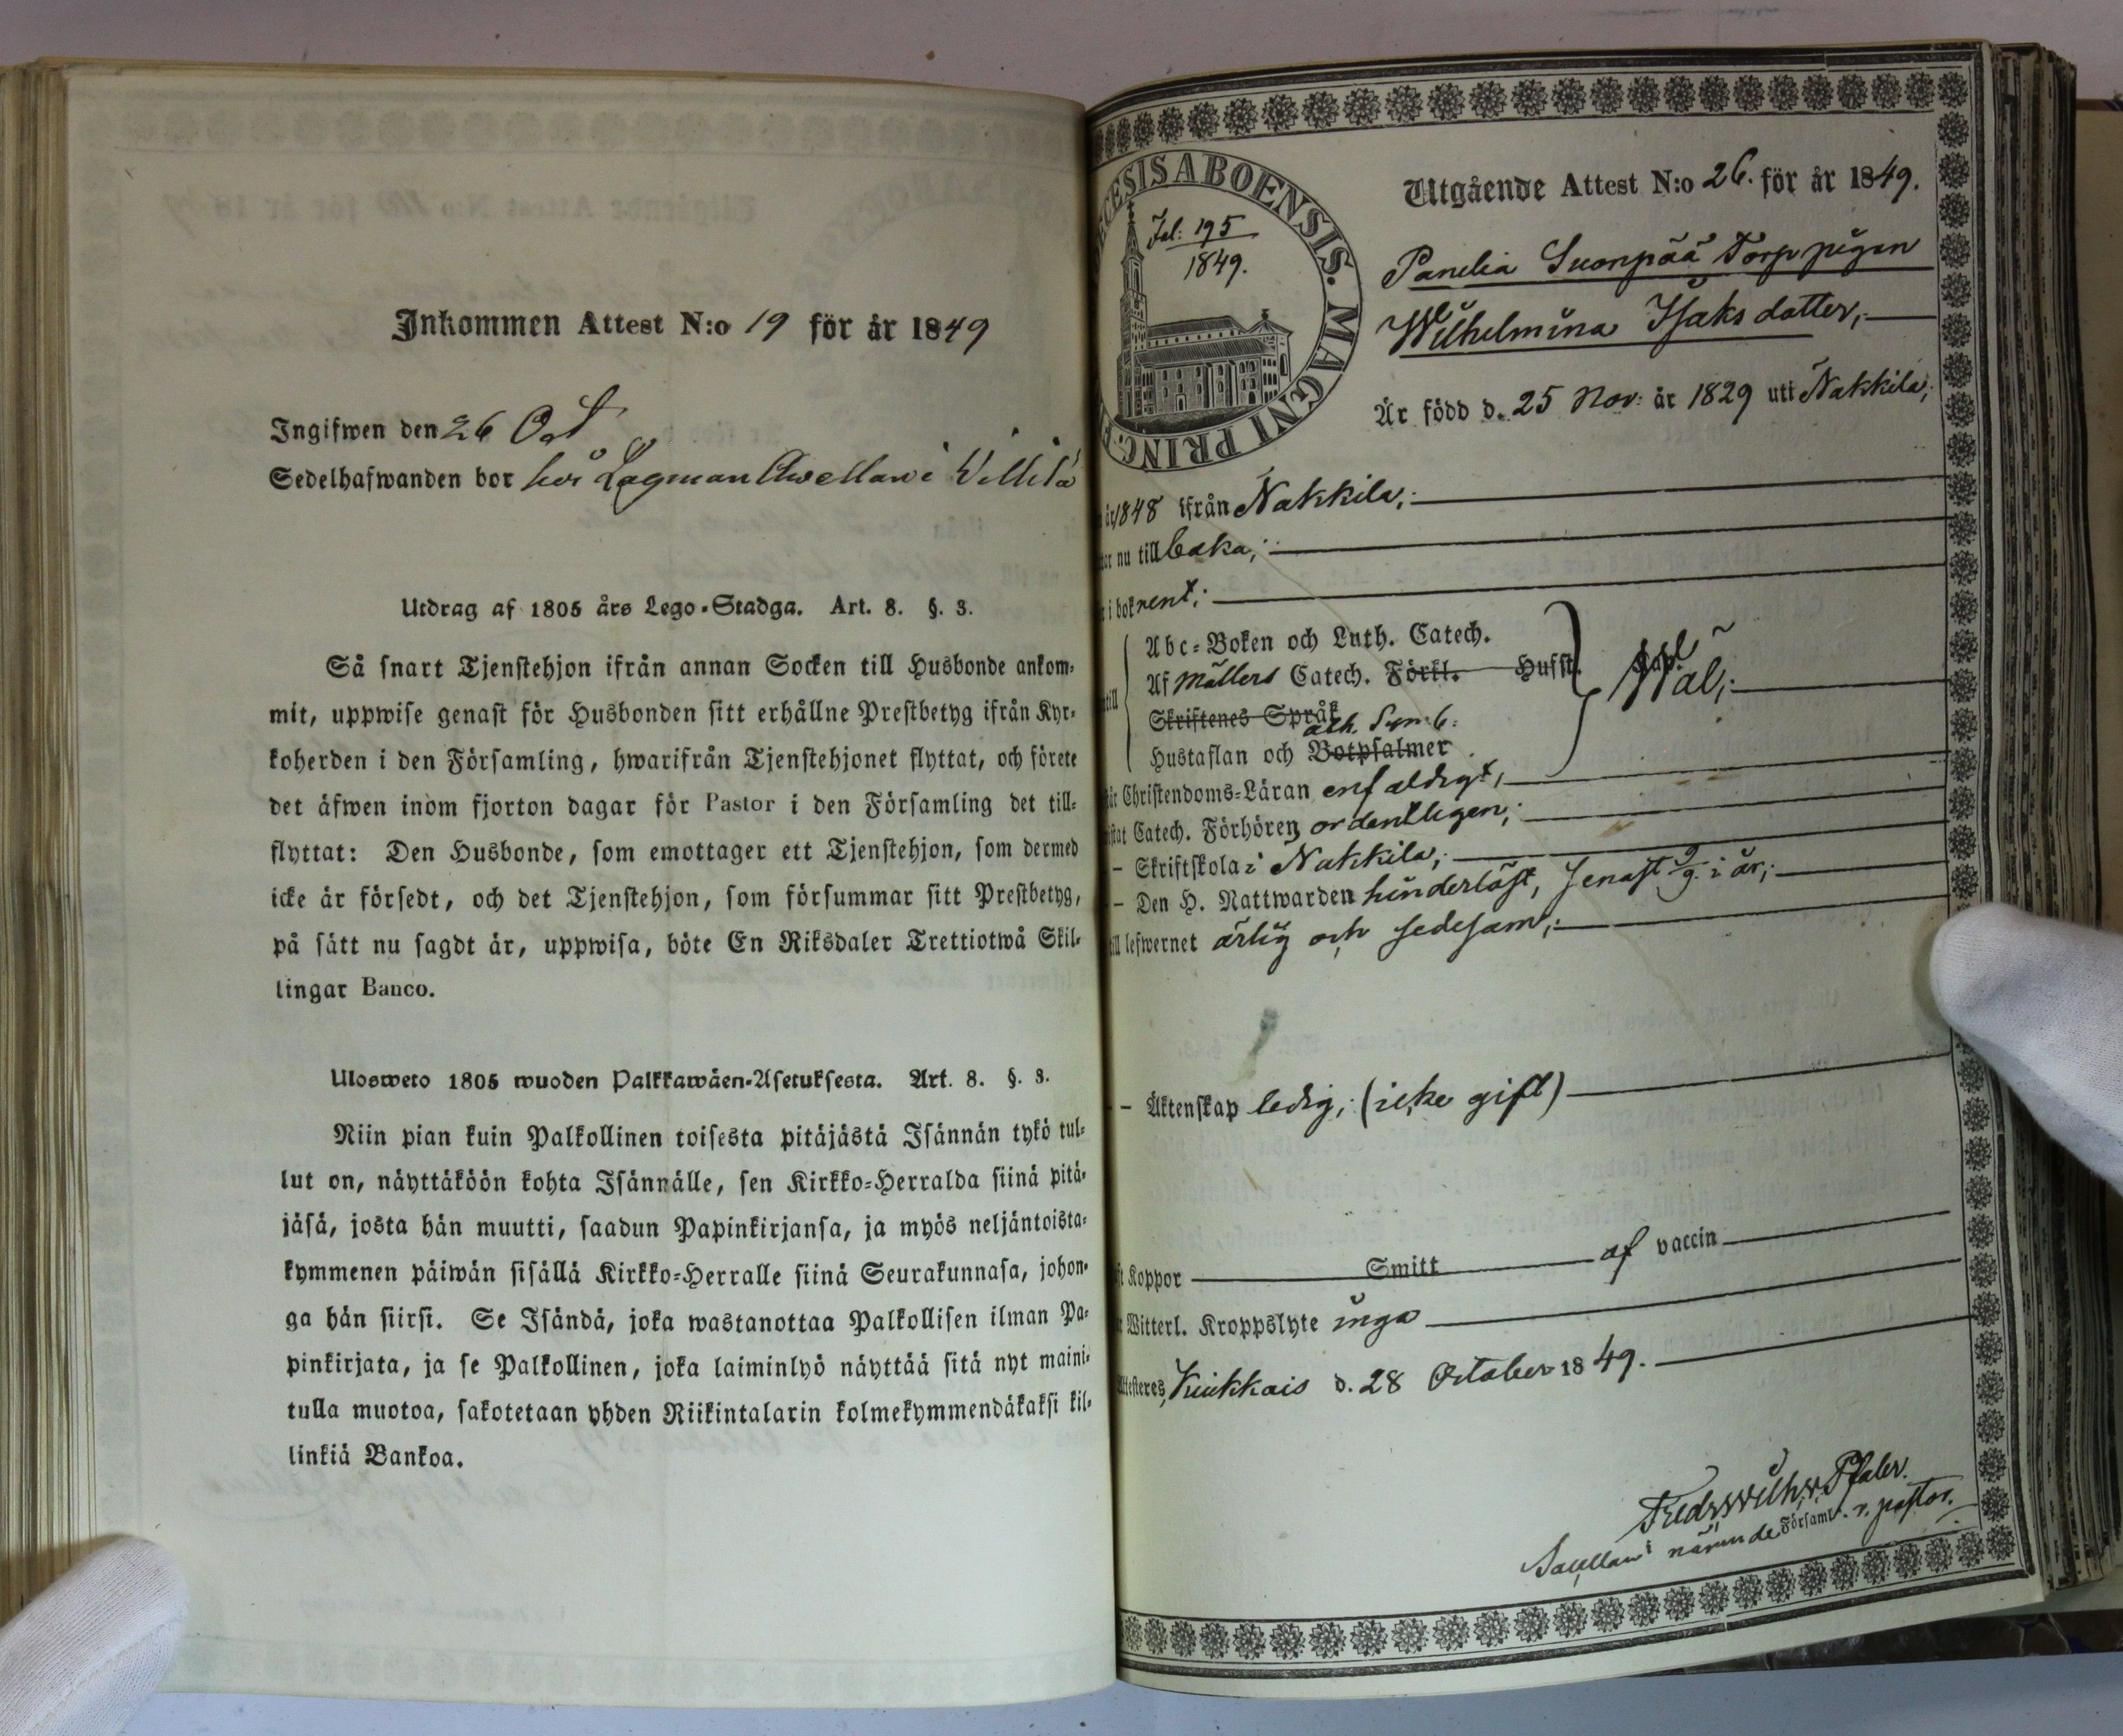 Inkommen Attest N:o 19 för år 1849
Ingifwen den 26 Oct
Sedelhafwanden bor hos Lagman Avellan i Villilä
Utdrag af 1805 års Lego-Stadga. Art. 8. §. 3.
Så snart Tjenstehjon ifrån annan Socken till Husbonde ankom-
mit, uppwise genast för Husbonden sitt erhållne Prestbetyg ifrån Kyr-
koherden i den Församling, hwarifrån Tjenstehjonet flyttat, och förete
det äfwen inom fjorton dagar för Pastor i den Församling det till-
flyttat: Den Husbonde, som emottager ett Tjenstehjon, som dermed
icke är försedt, och det Tjenstehjon, som försummar sitt Prestbetyg,
på sätt nu sagdt är, uppwisa, böte En Riksdaler Trettiotwå Skil-
lingar Banco.
Ulosweto 1805 wuoden Palkkawäen-Asetuksesta. Art. 8. §. 3.
Niin pian kuin Palkollinen toisesta pitäjästä Isännän tykö tul-
lut on, näyttäköön kohta Isännälle, sen Kirkko-Herralda siinä pitä-
jäsä, josta hän muutti, saadun Papinkirjansa, ja myös neljäntoista-
kymmenen päiwän sisällä Kirkko-Herralle siinä Seurakunnasa, johon-
ga hän siirsi. Se Isändä, joka wastanottaa Palkollisen ilman Pa-
pinkirjata, ja se Palkollinen, joka laiminlyö näyttää sitä nyt maini-
tulla muotoa, sakotetaan yhden Riikintalarin kolmekymmendäkaksi kil-
linkiä Bankoa.
ECESIS ABOENSIS. MAGNI PRINC.
Fol: 195
1849.
Utgående Attest N:o 26. för år 1849.
Panelia Suonpää Torp pigan
Wilhelmina Isaks dotter,
Är född d. 25 Nov: år 1829 uti Nakkila;
år 1848 ifrån Nakkila;
nu till baka;
i bok rent;
Abc-Boken och Luth. Catech.
Af Möllers Catech. Förkl. Hufst.
Skriftenes Språk
ath. Symb:
Hustaflan och Botpsalmer
Wäl;
Christendoms-Läran enfaldigt,
Catech. Förhören ordentligen;
– Skriftskola i Nakkila;
– Den H. Nattwarden hinderlöst, senast 2/9 i år;
lefwernet ärlig och sedesam;
– Äktenskap ledig, (icke gift)
Koppor Smitt af vaccin
Witterl. Kroppslyte inga
Attesteres, Kiukkais d. 28 October 1849.
Fredr Wilh v. Pfaler.
Sacellan i närvnde Församl. v. pastor.